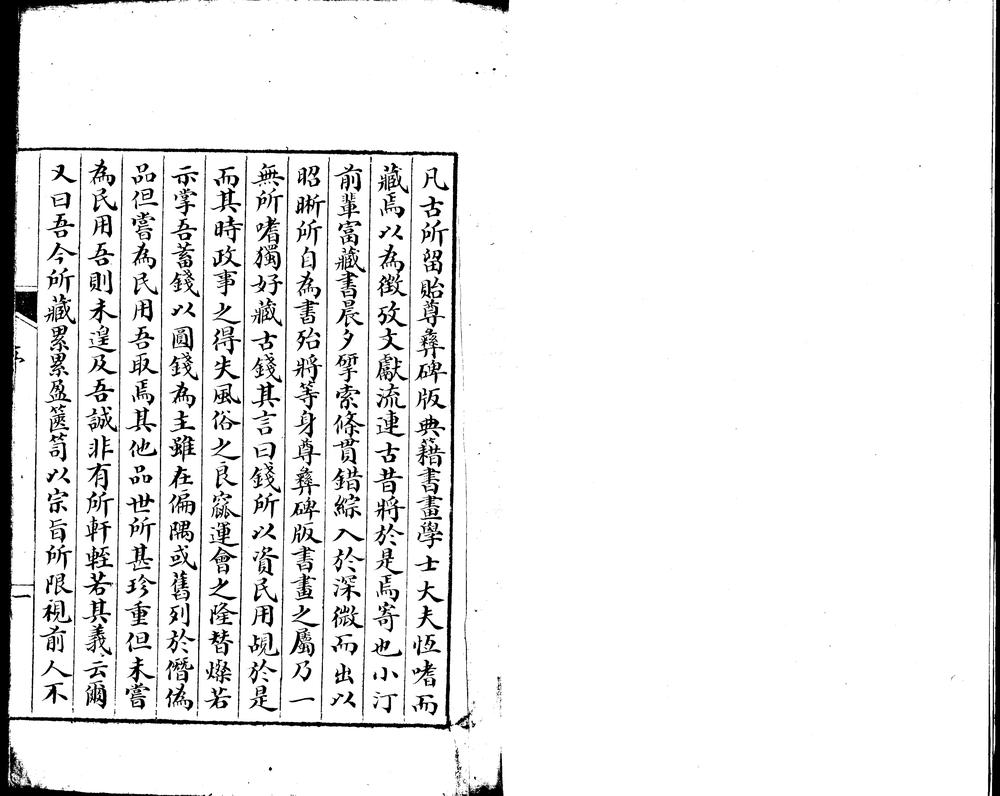 凡古所留貽尊彝碑版典籍書畫學士大夫恆嗜而
藏焉以為徵攷文獻流連古昔將於是焉寄也小汀
前輩富藏書晨夕揅索條貫錯綜入於深微而出以
昭晰所自為書殆將等身尊彝碑版書畫之屬乃一
無所嗜獨好藏古錢其言曰錢所以資民用覘於是
而其時政事之得失風俗之良窳運會之隆替燦若
示掌吾蓄錢以圓錢為主雖在偏隅或舊列於僭偽
品但嘗為民用吾取焉其他品世所甚珍重但未嘗
為民用吾則未遑及吾誠非有所軒輊若其義云爾
又曰吾今所藏累累盈篋笥以宗旨所限視前人不
序
一